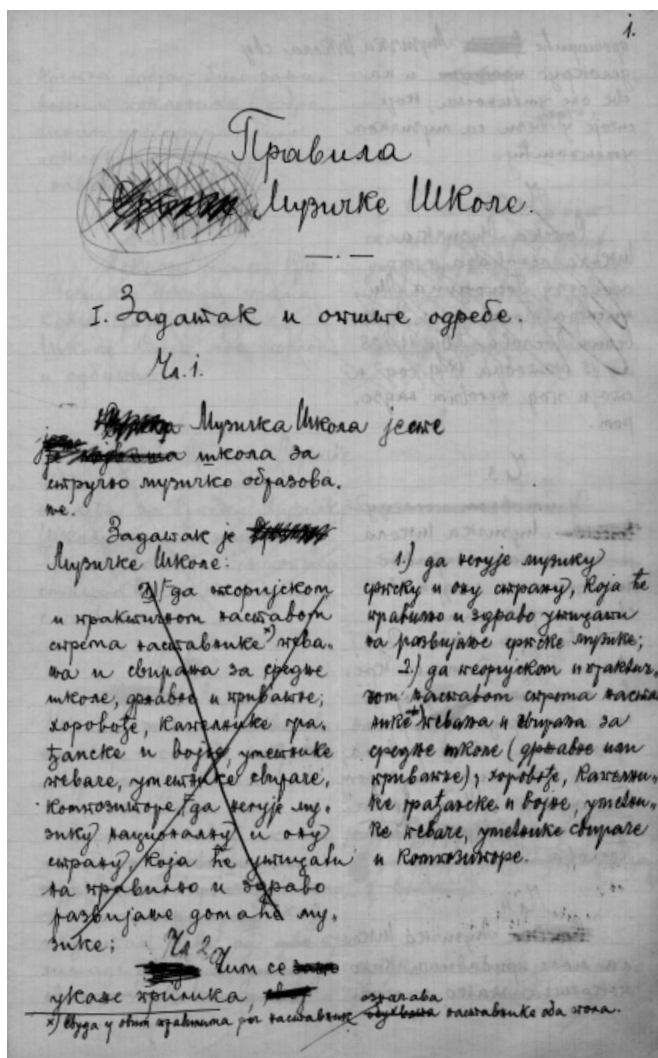 1.
Правила
Музичке Школе.
I. Задатак и опште одредбе.
Чл. 1.
Музичка Школа јесте
школа за
стручно музичко образова-
ње.
Задатак је
Музичке Школе:
да теоријском
и практичном наставом
спрема наставнике*) пева-
ња и свирања за средње
школе, државне и приватне;
хоровође, капелнике гра-
ђанске и војне, уметнике
певаче, уметнике свираче,
композиторе; да негује му-
зику националну и ону
страну, која ће утицати
на правилно и здраво
развијање домаће му-
зике;
1.) да негује музику
српску и ону страну, која ће
правилно и здраво утицати
на развијање српске музике;
2.) да теоријском и практич-
ном наставом спрема настав-
нике*) певања и свирања за
средње школе (државне или
приватне); хоровође, капелни-
ке грађанске и војне, уметни-
ке певаче, уметнике свираче
и композиторе.
Чл. 2.
Чим се
укаже прилика,
означава
x) Свуда у овим правилима реч наставник обухвата наставнике оба пола.